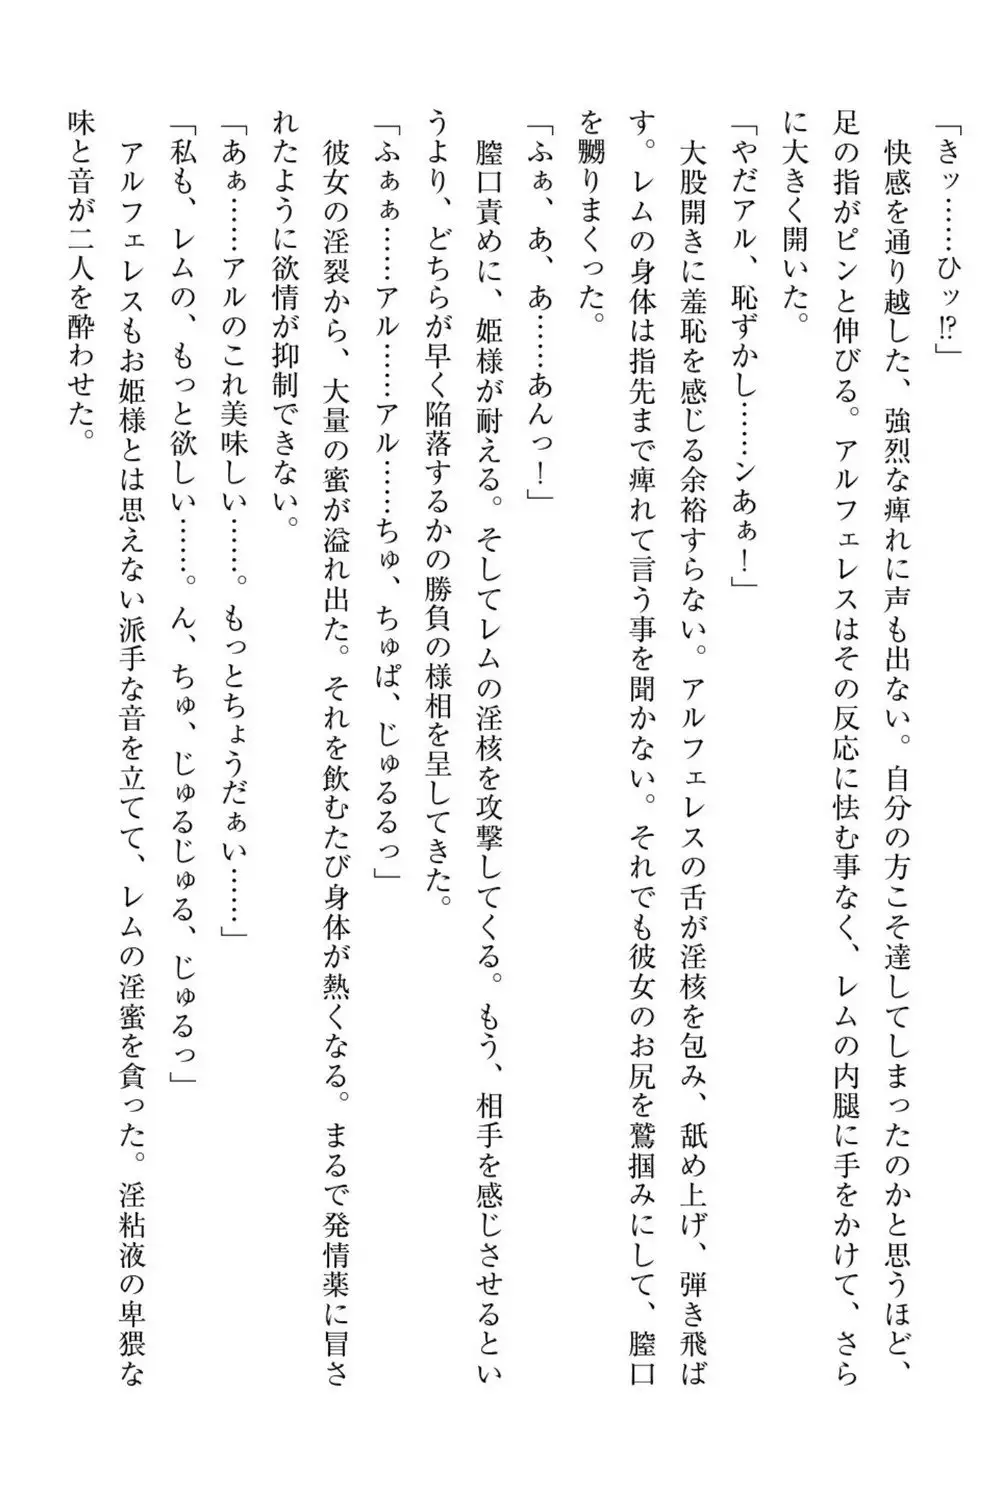 「きッ……ひッ⁉」
　快感を通り越した、強烈な痺れに声も出ない。自分の方こそ達してしまったのかと思うほど、
足の指がピンと伸びる。アルフェレスはその反応に怯む事なく、レムの内腿に手をかけて、さら
に大きく開いた。
「やだアル、恥ずかし……ンあぁ！」
　大股開きに羞恥を感じる余裕すらない。アルフェレスの舌が淫核を包み、舐め上げ、弾き飛ば
す。レムの身体は指先まで痺れて言う事を聞かない。それでも彼女のお尻を鷲掴みにして、膣口
を嬲りまくった。
「ふぁ、あ、あ……あんっ！」
　膣口責めに、姫様が耐える。そしてレムの淫核を攻撃してくる。もう、相手を感じさせるとい
うより、どちらが早く陥落するかの勝負の様相を呈してきた。
「ふぁぁ……アル……アル……ちゅ、ちゅぱ、じゅるるっ」
　彼女の淫裂から、大量の蜜が溢れ出た。それを飲むたび身体が熱くなる。まるで発情薬に冒さ
れたように欲情が抑制できない。
「あぁ……アルのこれ美味しい……。もっとちょうだぁい……」
「私も、レムの、もっと欲しい……。ん、ちゅ、じゅるじゅる、じゅるっ」
　アルフェレスもお姫様とは思えない派手な音を立てて、レムの淫蜜を貪った。淫粘液の卑猥な
味と音が二人を酔わせた。